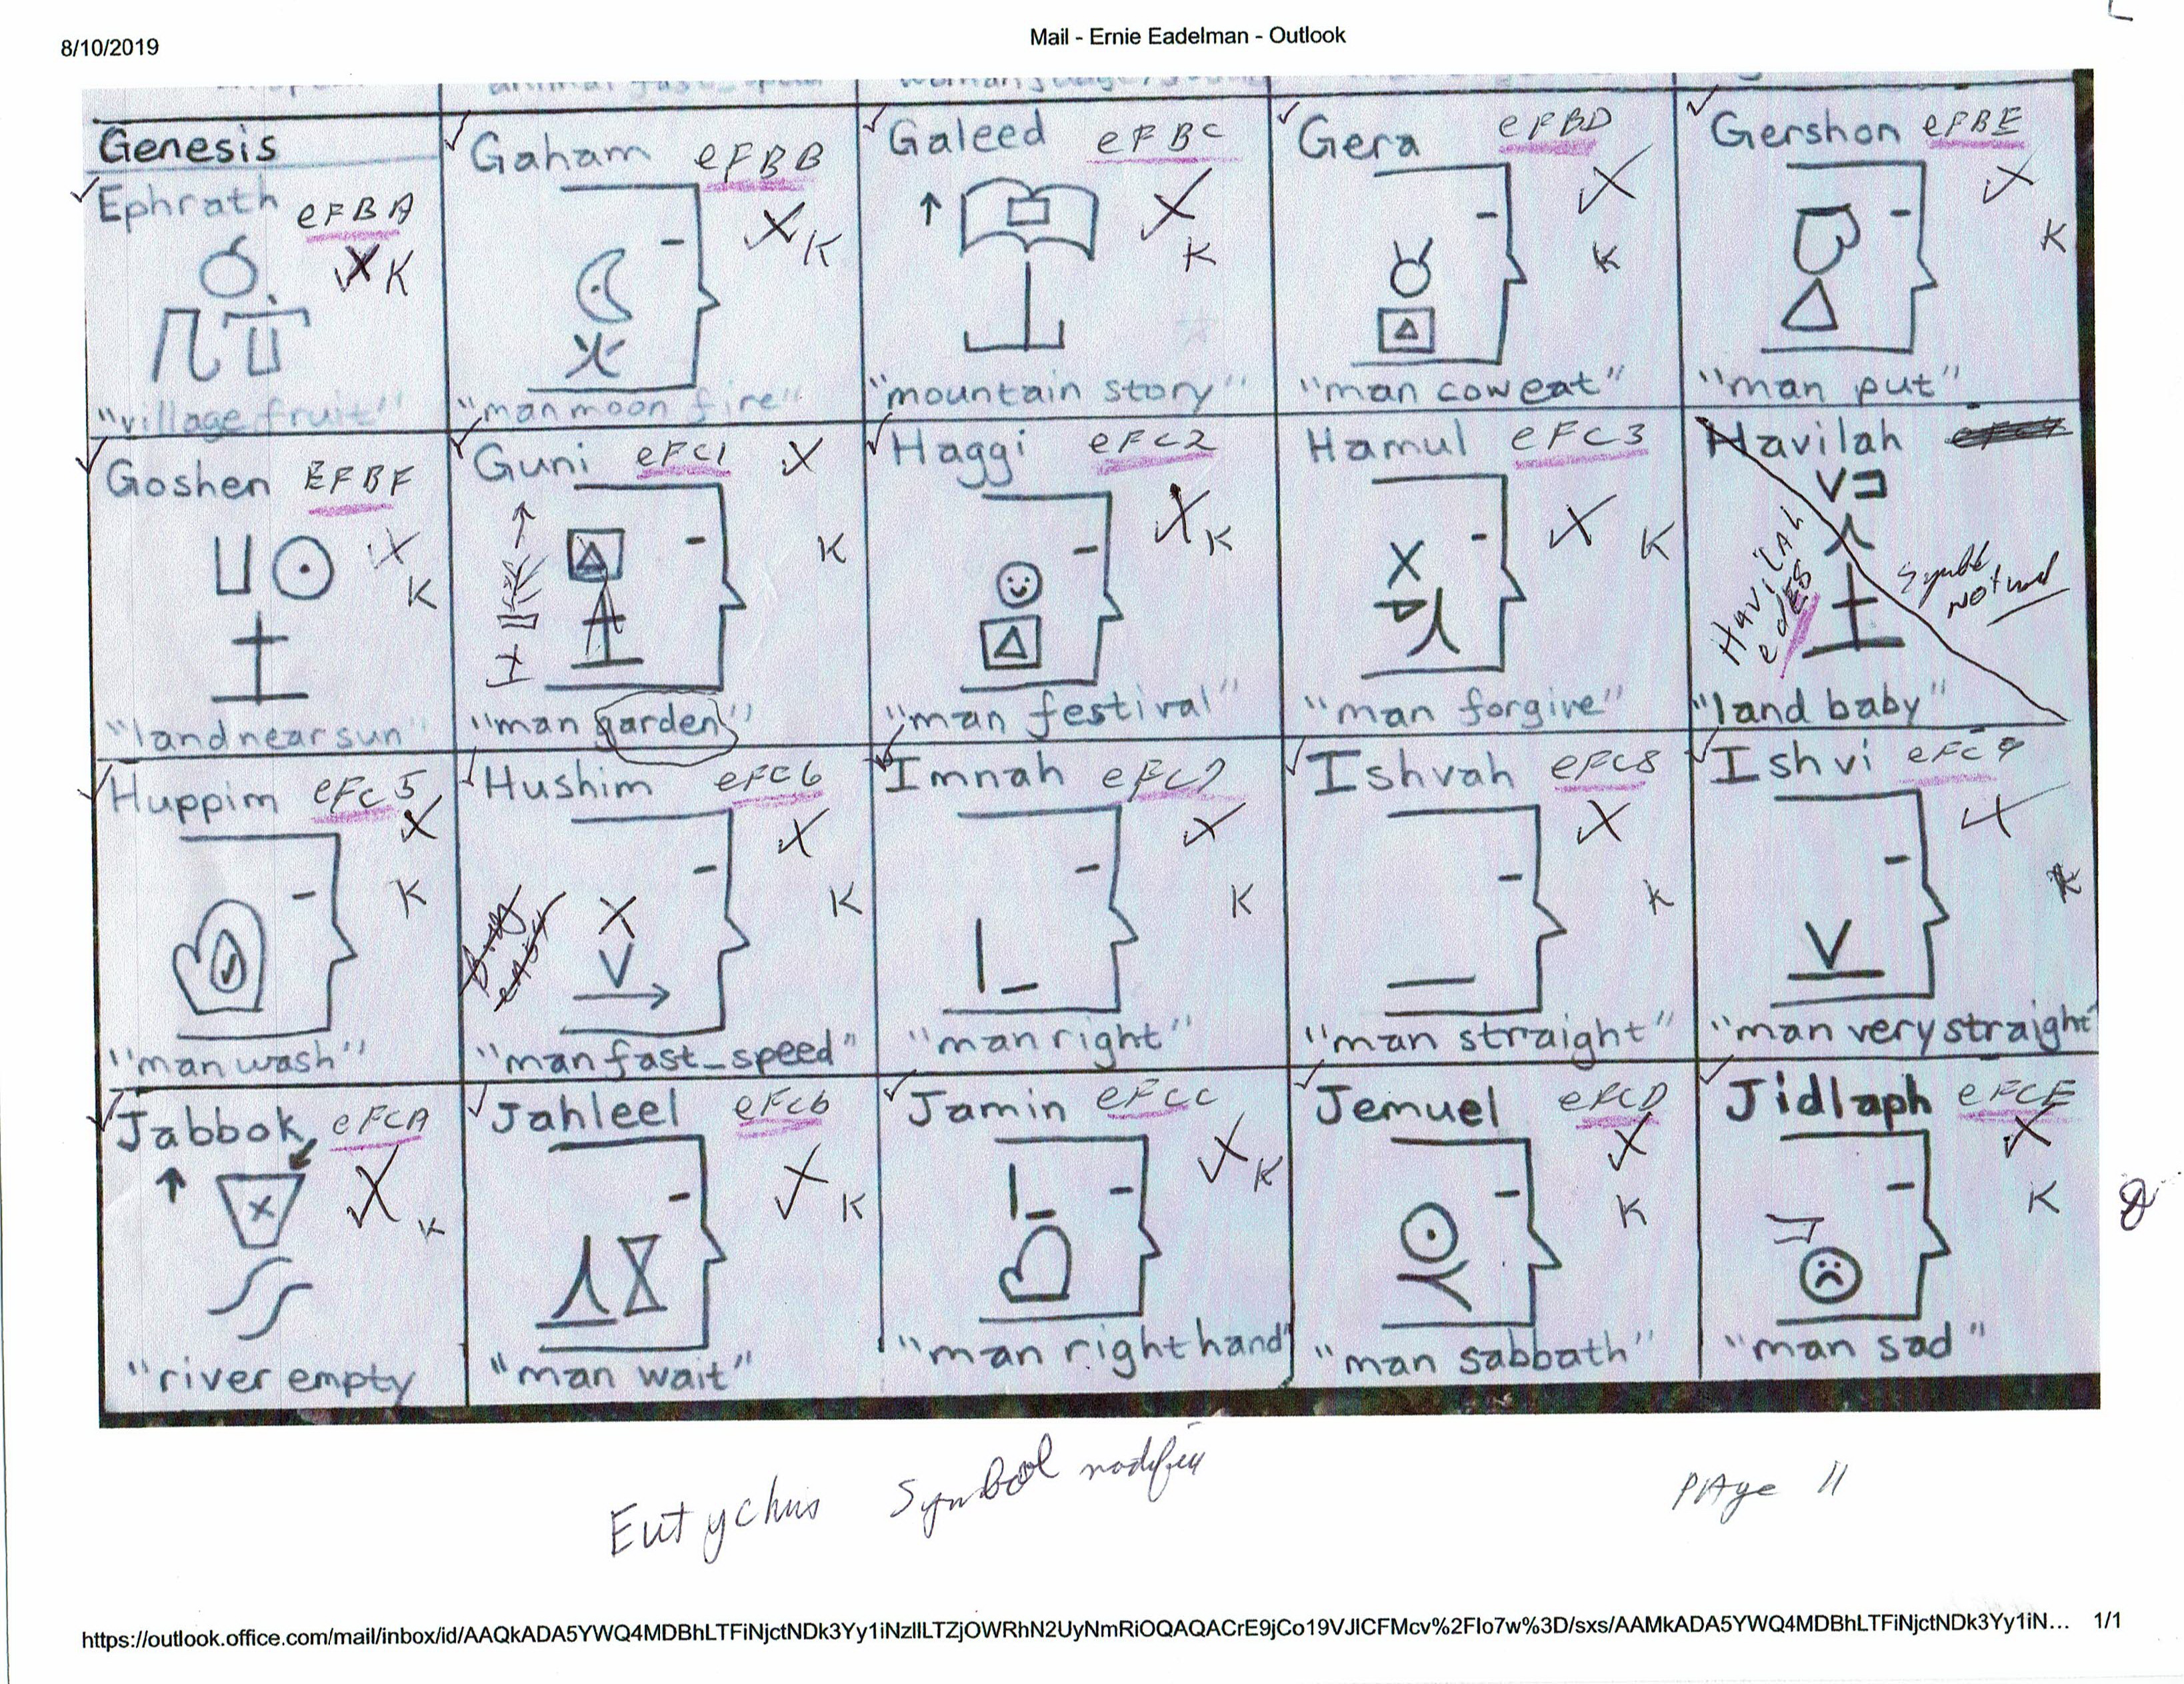 8/10/2019
Mail - Ernie Eadelman - Outlook
Genesis
Ephrath eFBA
K
"village fruit"
Gaham eFBB
K
"man moon fire"
Galeed eFBC
K
"mountain story"
Gera eFBD
K
"man cow eat"
Gershon eFBE
K
"man put"
Goshen EFBF
K
"land near sun"
Guni eFC1
K
"man garden"
Haggi eFC2
K
"man festival"
Hamul eFC3
K
"man forgive"
Havilah
HAviLAh
edE8
Symbol
Not used
"land baby"
Huppim eFC5
K
"man wash"
Hushim eFC6
K
"man fast_speed"
Imnah eFC7
K
"man right"
Ishvah eFC8
K
"man straight"
Ishvi eFC9
K
"man very straight"
Jabbok eFCA
K
"river empty
Jahleel eFCb
K
"man wait"
Jamin eFCC
K
"man right hand"
Jemuel eFCD
K
"man sabbath"
Jidlaph eFCE
K
"man sad"
Eutychus Symbol modified
PAge 11
https://outlook.office.com/mail/inbox/id/AAQkADA5YWQ4MDBhLTFiNjctNDk3Yy1iNzllLTZjOWRhN2UyNmRiOQAQACrE9jCo19VJlCFMcv%2Flo7w%3D/sxs/AAMkADA5YWQ4MDBhLTFiNjctNDk3Yy1iN... 1/1